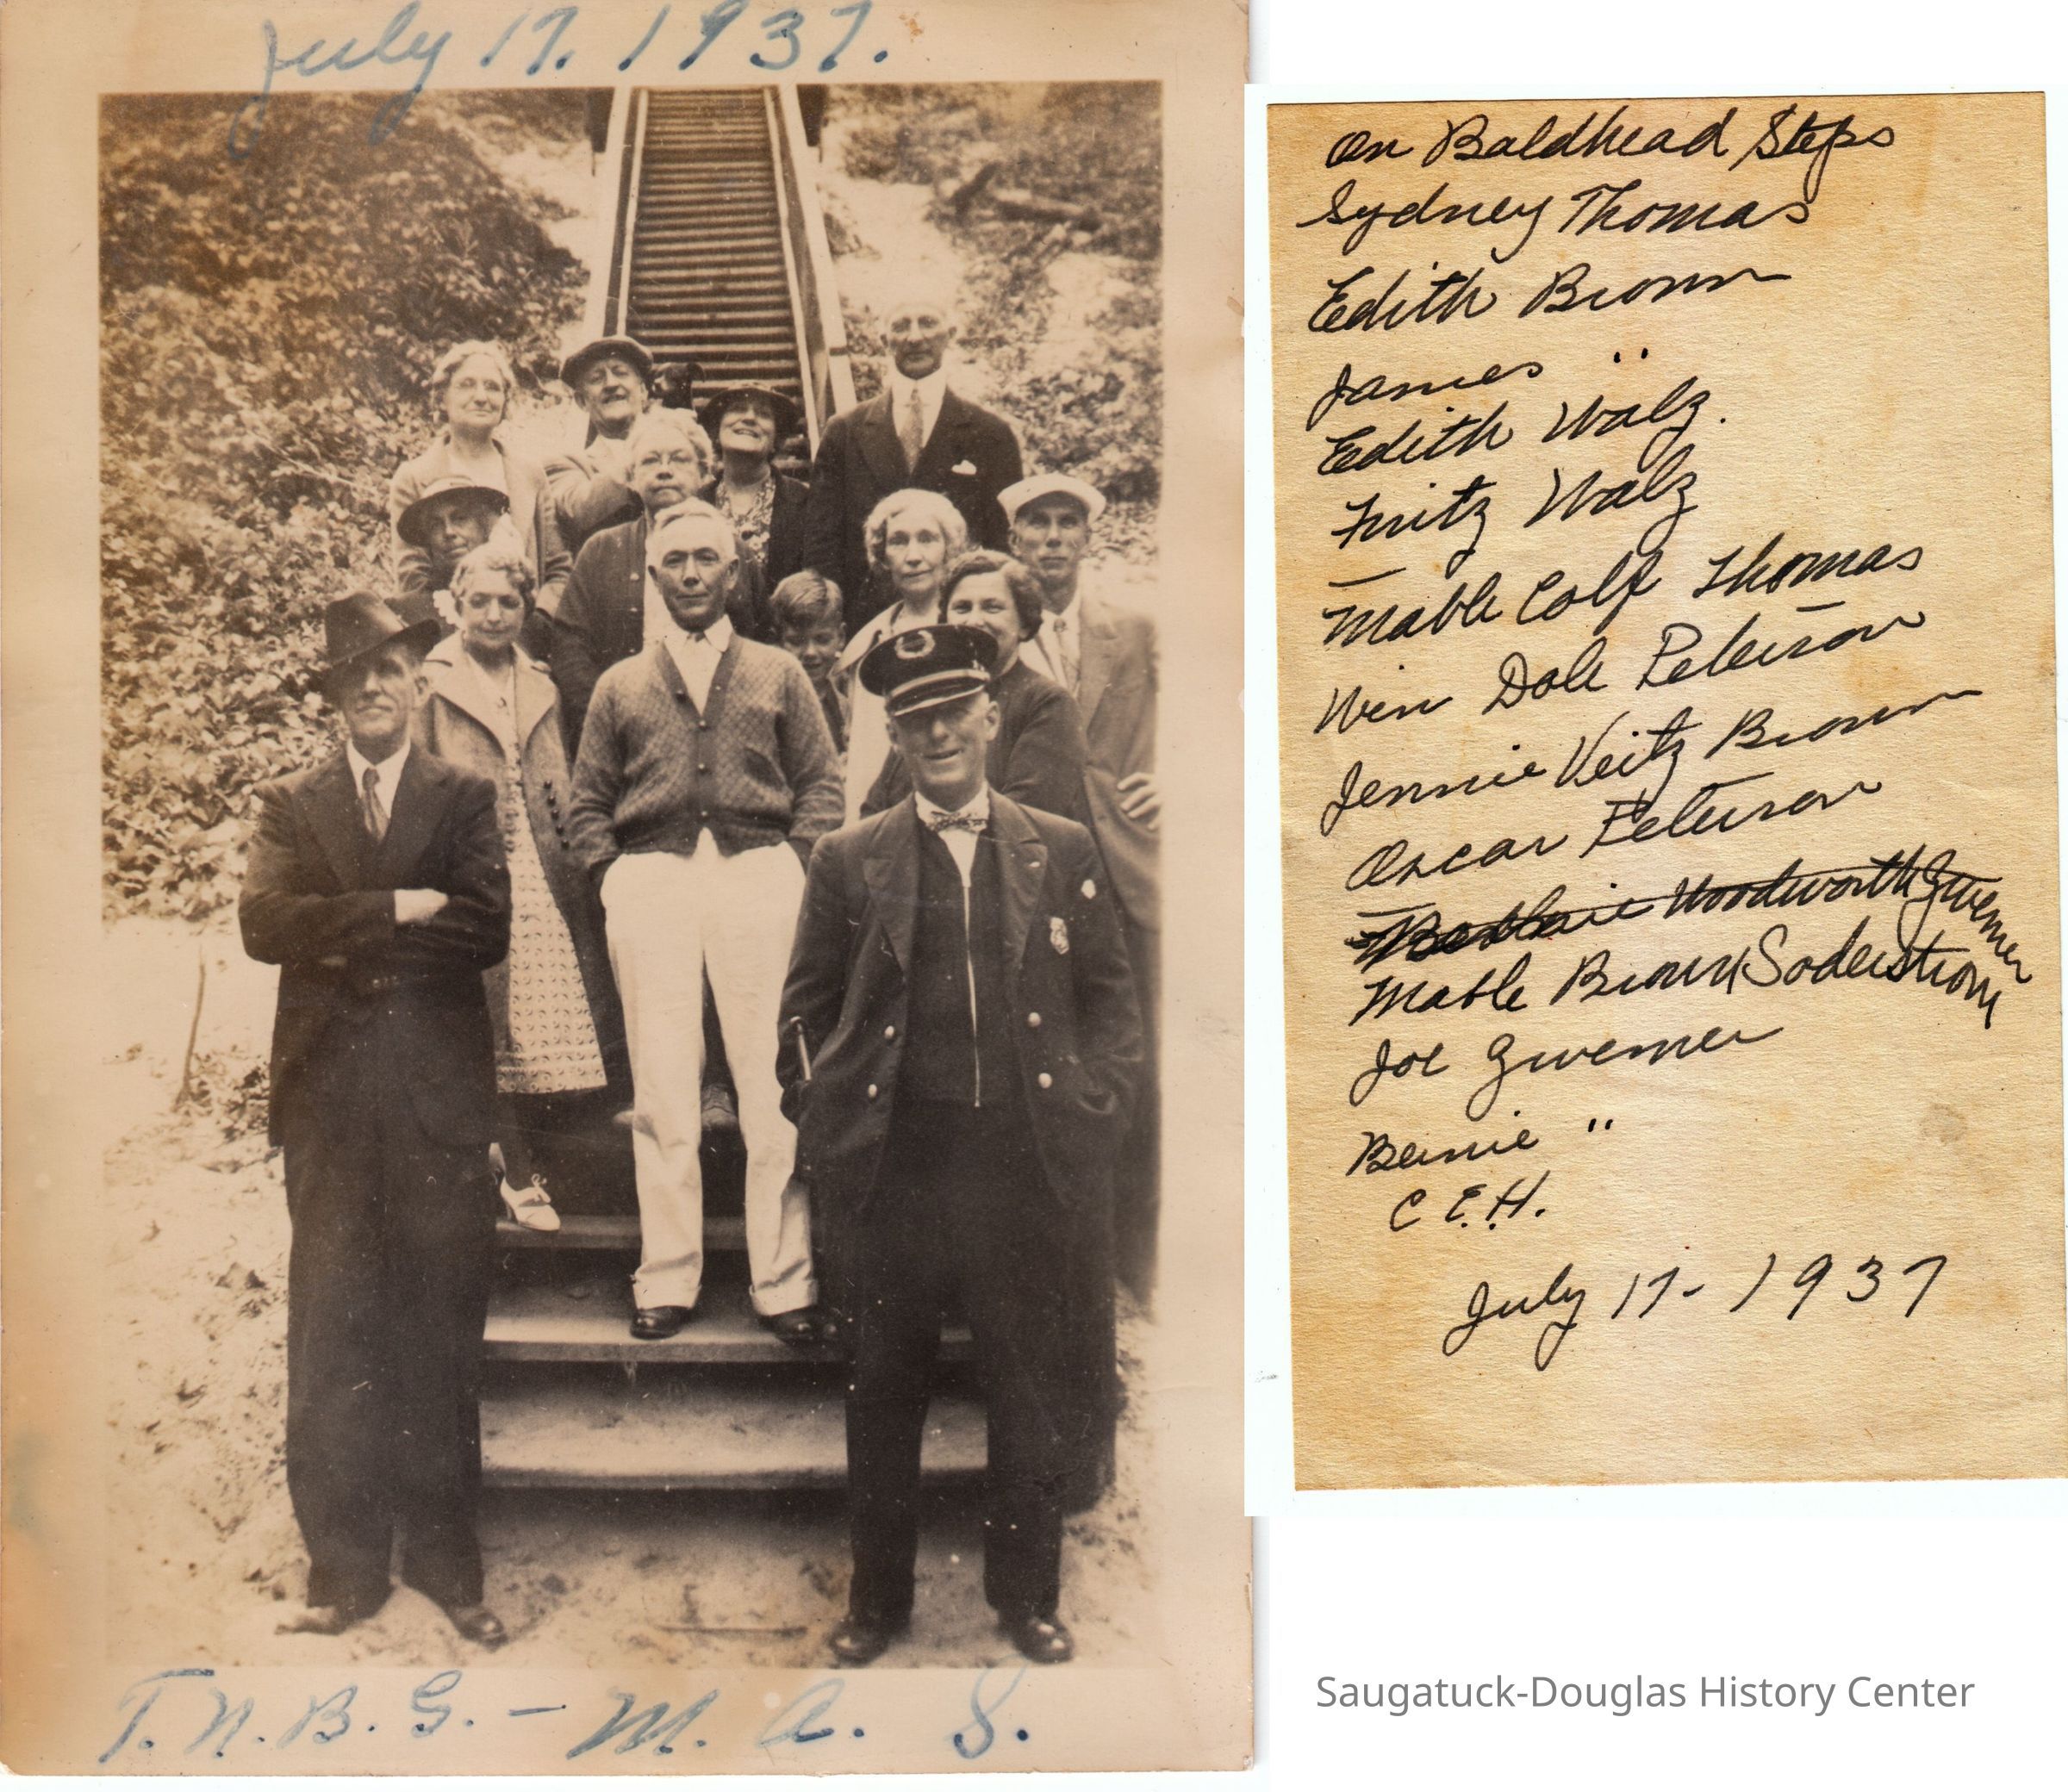 July 17. 1937.
T. N. B. G. - M. A. S.
On Baldhead Steps
Sydney Thomas
Edith Brown
James "
Edith Walz.
Fritz Walz
Mable Colf Thomas
Win Dole Peterson
Jennie Veitz Brown
Oscar Peterson
Woodworth Zwemer
Mable Brown Soderstrom
Joe Zwemer
Bernie "
C E. H.
July 17- 1937
Saugatuck-Douglas History Center